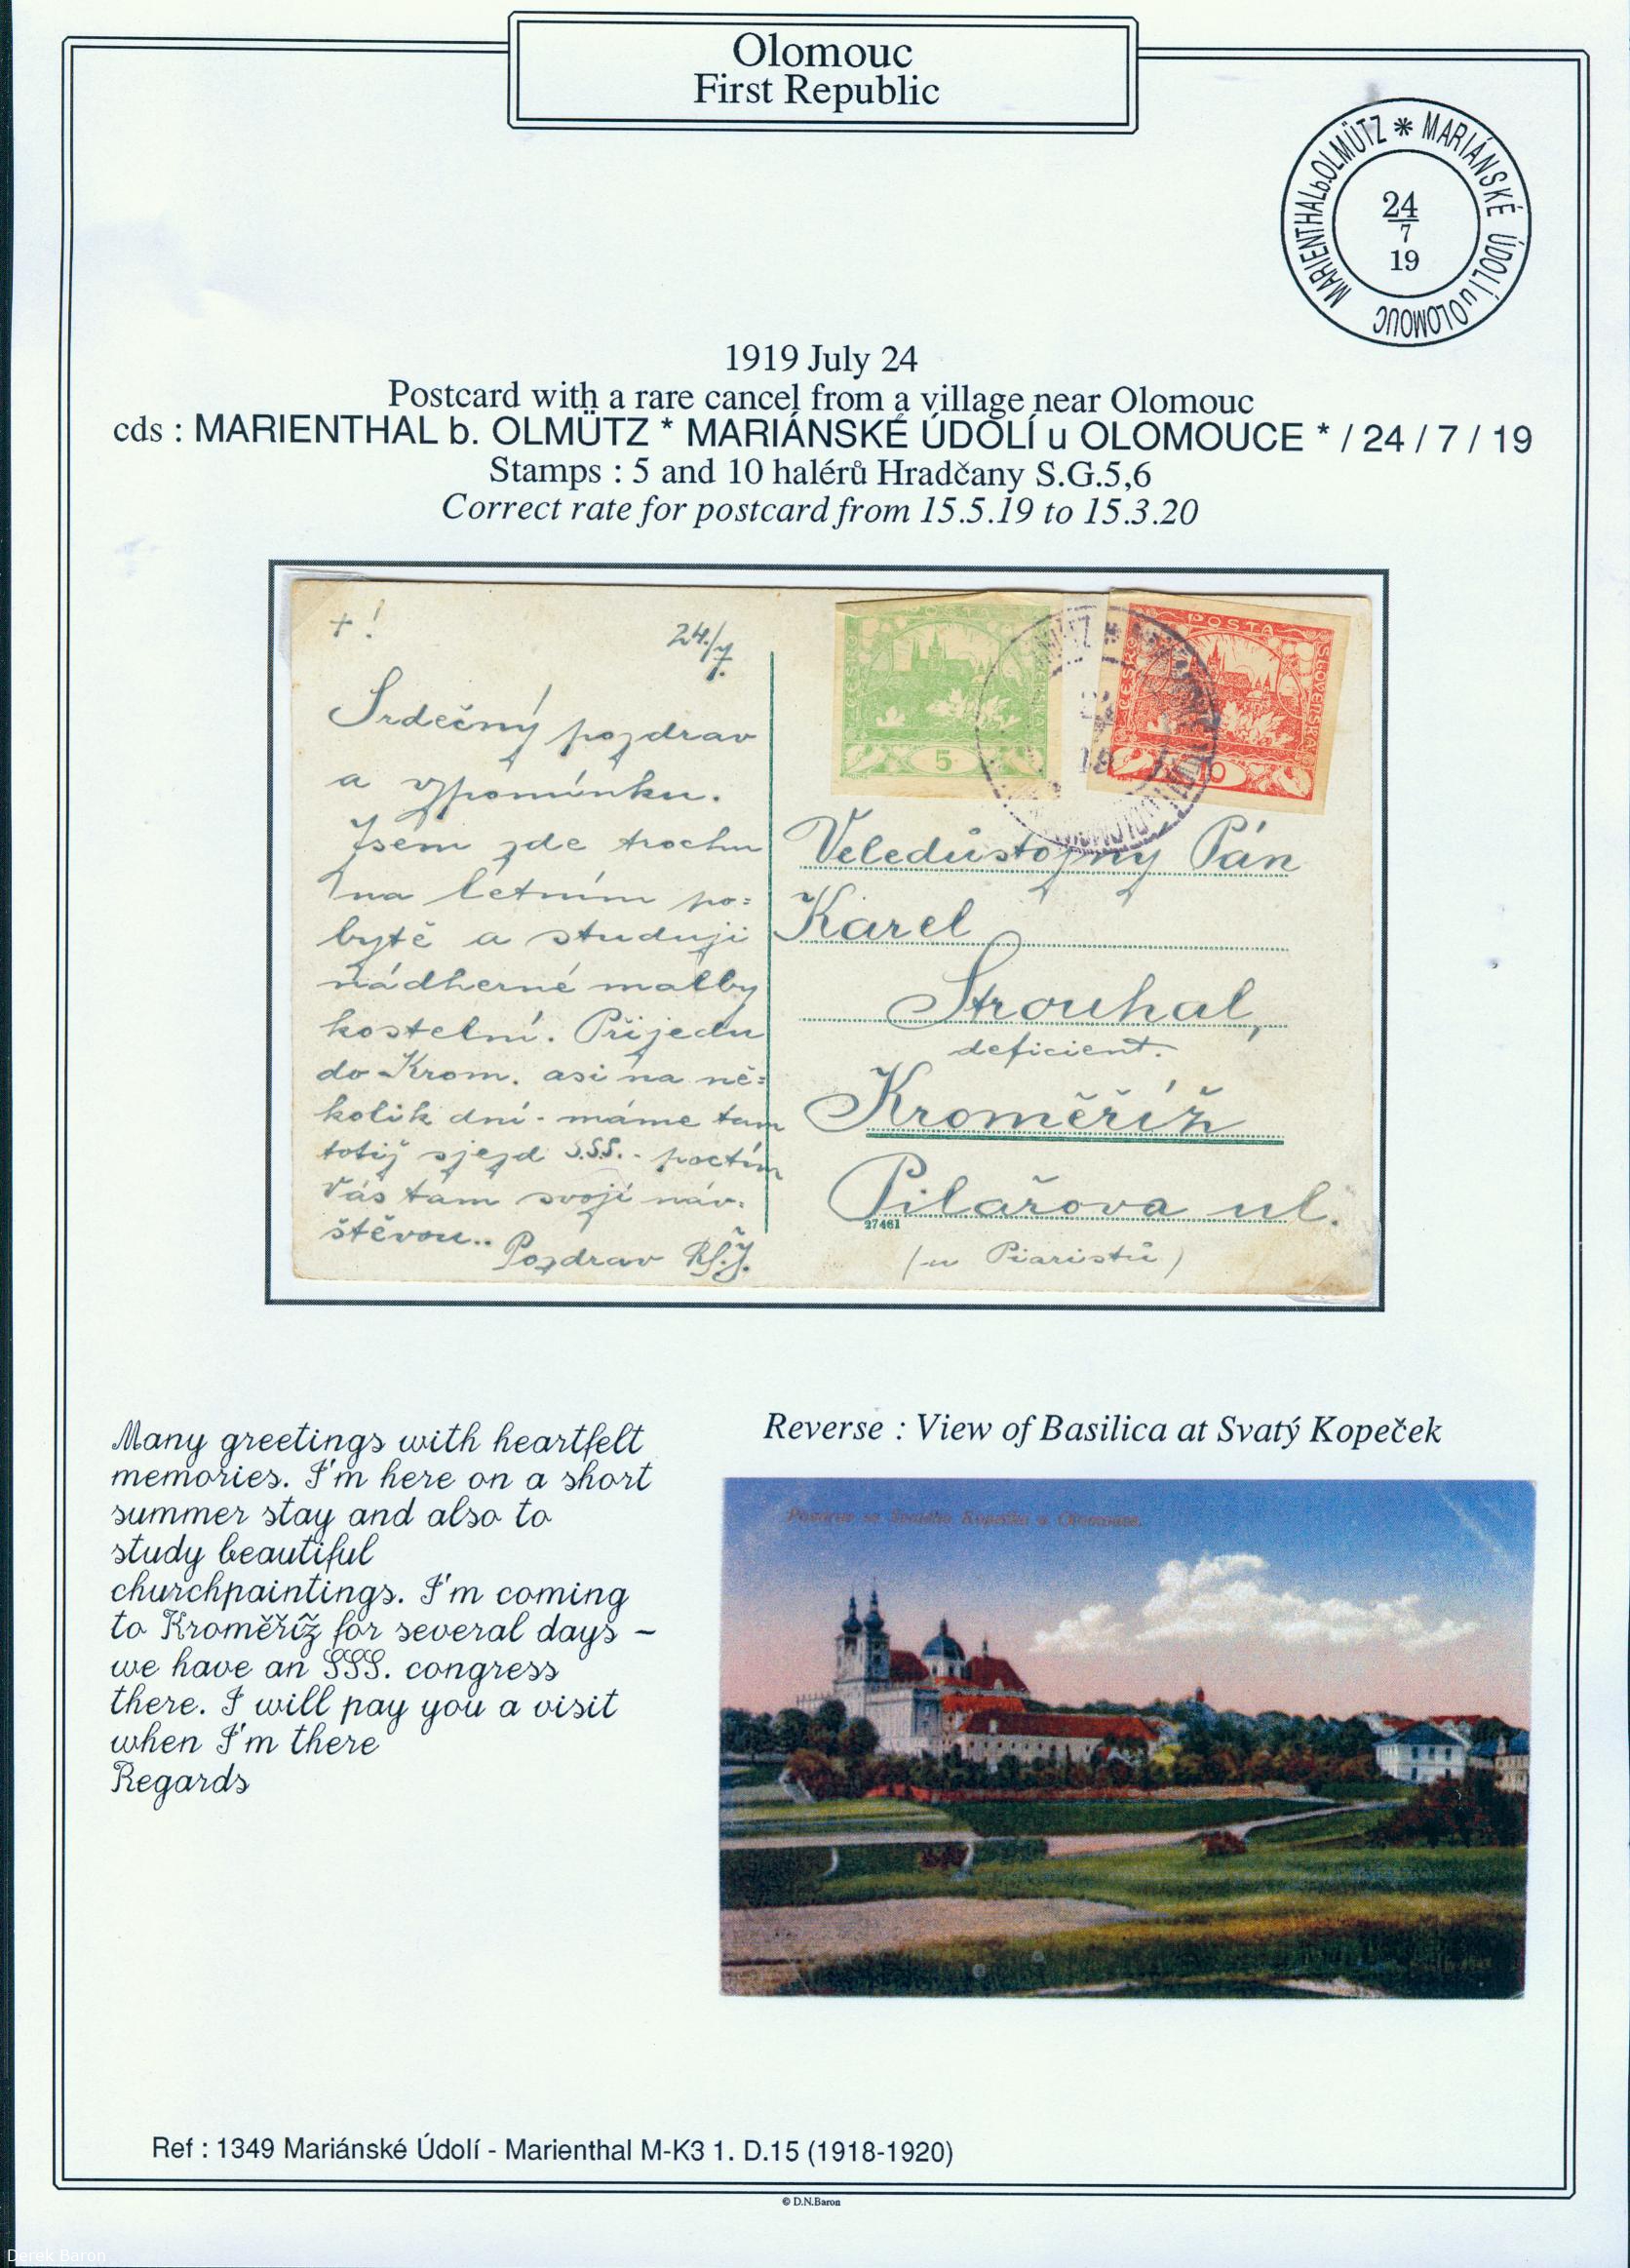 Olomouc
First Republic
MARIENTHAL b. OLMÜTZ * MARIÁNSKÉ ÚDOLÍ u OLOMOUC
24
7
19
1919 July 24
Postcard with a rare cancel from a village near Olomouc
cds : MARIENTHAL b. OLMÜTZ * MARIÁNSKÉ ÚDOLÍ u OLOMOUCE * / 24 / 7 / 19
Stamps : 5 and 10 halérů Hradčany S.G.5,6
Correct rate for postcard from 15.5.19 to 15.3.20
+ !
24./7.
Srdečný pozdrav
a vzpomínku.
Jsem zde trochu
na letním po=
bytě a studuji
nádherné malby
kostelní. Přijedu
do Krom. asi na ně=
kolik dní - máme tam
totiž sjezd S.S.S. - poctím
Vás tam svojí náv-
štěvou..
Pozdrav
POSTA
ČESKO
5
POSTA
ČESKO
SLOVENSKÁ
Veledůstojný Pán
Karel
Strouhal,
deficient.
Kroměříž
Pilařova ul.
27461
(u Piaristů)
Many greetings with heartfelt
memories. I'm here on a short
summer stay and also to
study beautiful
churchpaintings. I'm coming
to Kroměříž for several days –
we have an SSS. congress
there. I will pay you a visit
when I'm there
Regards
Reverse : View of Basilica at Svatý Kopeček
Pozdrav ze Svatého Kopečku u Olomouce.
Ref : 1349 Mariánské Údolí - Marienthal M-K3 1. D.15 (1918-1920)
© D.N.Baron
Derek Baron